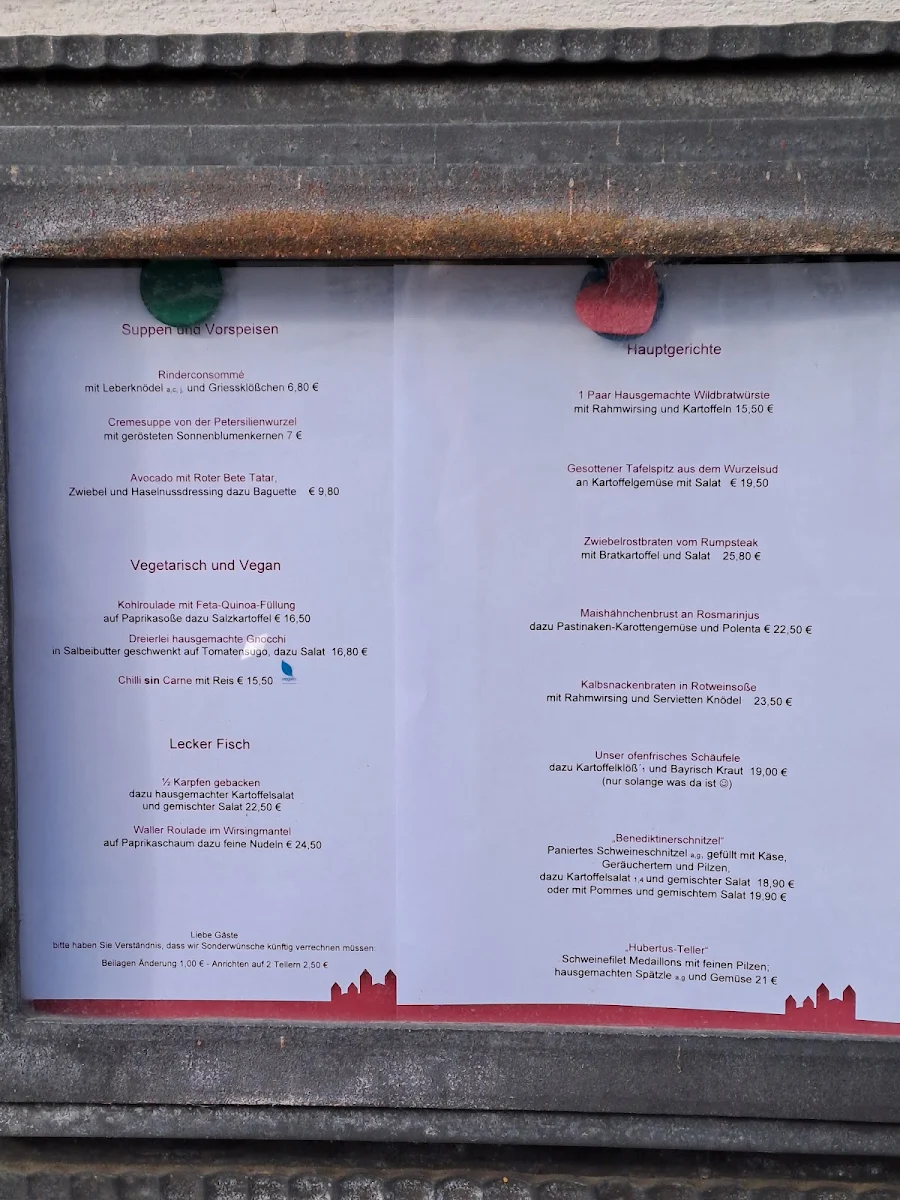 Suppen und Vorspeisen
Rinderconsommé
mit Leberknödel a,c, j, und Griessklößchen 6,80 €
Cremesuppe von der Petersilienwurzel
mit gerösteten Sonnenblumenkernen 7 €
Avocado mit Roter Bete Tatar,
Zwiebel und Haselnussdressing dazu Baguette € 9,80
Vegetarisch und Vegan
Kohlroulade mit Feta-Quinoa-Füllung
auf Paprikasoße dazu Salzkartoffel € 16,50
Dreierlei hausgemachte Gnocchi
in Salbeibutter geschwenkt auf Tomatensugo, dazu Salat 16,80 €
Chilli sin Carne mit Reis € 15,50
Lecker Fisch
½ Karpfen gebacken
dazu hausgemachter Kartoffelsalat
und gemischter Salat 22,50 €
Waller Roulade im Wirsingmantel
auf Paprikaschaum dazu feine Nudeln € 24,50
Liebe Gäste
bitte haben Sie Verständnis, dass wir Sonderwünsche künftig verrechnen müssen:
Beilagen Änderung 1,00 € - Anrichten auf 2 Tellern 2,50 €
Hauptgerichte
1 Paar Hausgemachte Wildbratwürste
mit Rahmwirsing und Kartoffeln 15,50 €
Gesottener Tafelspitz aus dem Wurzelsud
an Kartoffelgemüse mit Salat € 19,50
Zwiebelrostbraten vom Rumpsteak
mit Bratkartoffel und Salat 25,80 €
Maishähnchenbrust an Rosmarinjus
dazu Pastinaken-Karottengemüse und Polenta € 22,50 €
Kalbsnackenbraten in Rotweinsoße
mit Rahmwirsing und Servietten Knödel 23,50 €
Unser ofenfrisches Schäufele
dazu Kartoffelklöß´1 und Bayrisch Kraut 19,00 €
(nur solange was da ist ☺)
„Benediktinerschnitzel"
Paniertes Schweineschnitzel a,g, gefüllt mit Käse,
Geräuchertem und Pilzen,
dazu Kartoffelsalat 1,4 und gemischter Salat 18,90 €
oder mit Pommes und gemischtem Salat 19,90 €
„Hubertus-Teller"
Schweinefilet Medaillons mit feinen Pilzen;
hausgemachten Spätzle a,g und Gemüse 21 €